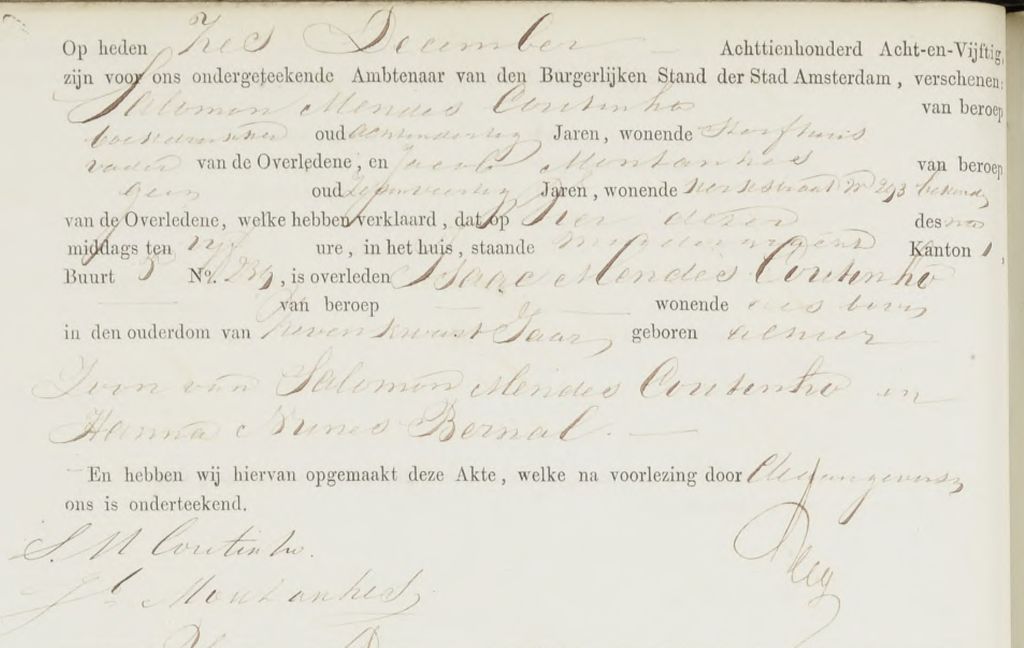 Op heden Zes December Achttienhonderd Acht-en-Vijftig,
zijn voor ons ondergeteekende Ambtenaar van den Burgerlijken Stand der Stad Amsterdam, verschenen:
Salomon Mendes Coutinho van beroep
oud achtendertig Jaren, wonende
vader van de Overledene, en Jacob Montanhes van beroep
geen oud Jaren, wonende Kerkstraat No 293 bekende
van de Overledene, welke hebben verklaard, dat op Vier dezer des na
middags ten vijf ure, in het huis, staande Kanton 1,
Buurt No. 239, is overleden Isaac Mendes Coutinho
van beroep wonende
in den ouderdom van Zeven Kwart Jaar, geboren alhier
Zoon van Salomon Mendes Coutinho en
Hanna Nunes Bernal.
En hebben wij hiervan opgemaakt deze Akte, welke na voorlezing door de aangevers,
ons is onderteekend.
S. M Coutinho.
Jb Montanhes